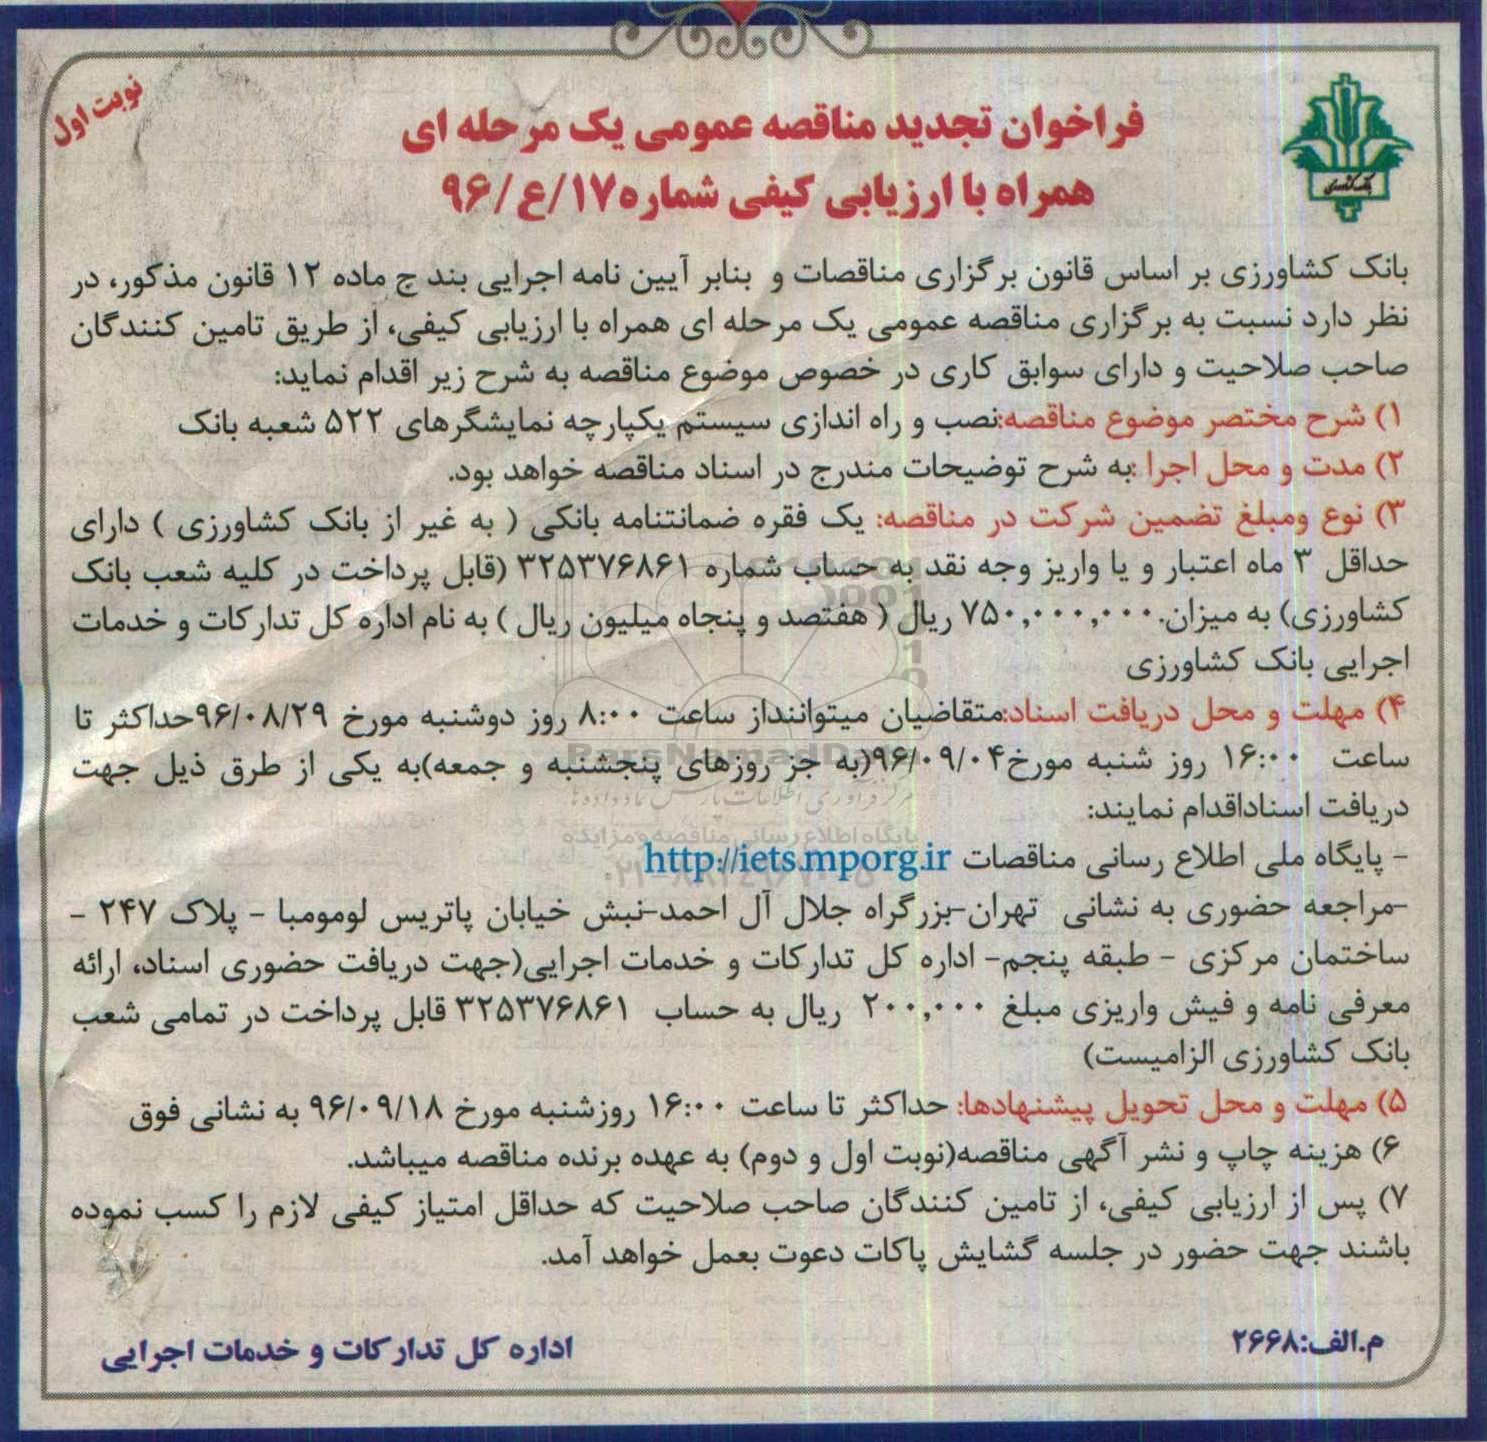 نوبت اول
بانک کشاورزی
فراخوان تجدید مناقصه عمومی یک مرحله ای
همراه با ارزیابی کیفی شماره ۱۷/ع/۹۶
بانک کشاورزی بر اساس قانون برگزاری مناقصات و بنابر آیین نامه اجرایی بند ج ماده ۱۲ قانون مذکور، در
نظر دارد نسبت به برگزاری مناقصه عمومی یک مرحله ای همراه با ارزیابی کیفی، از طریق تامین کنندگان
صاحب صلاحیت و دارای سوابق کاری در خصوص موضوع مناقصه به شرح زیر اقدام نماید:
۱) شرح مختصر موضوع مناقصه:نصب و راه اندازی سیستم یکپارچه نمایشگرهای ۵۲۲ شعبه بانک
۲) مدت و محل اجرا :به شرح توضیحات مندرج در اسناد مناقصه خواهد بود.
۳) نوع ومبلغ تضمین شرکت در مناقصه: یک فقره ضمانتنامه بانکی ( به غیر از بانک کشاورزی ) دارای
حداقل ۳ ماه اعتبار و یا واریز وجه نقد به حساب شماره ۳۲۵۳۷۶۸۶۱ (قابل پرداخت در کلیه شعب بانک
کشاورزی) به میزان ۷۵۰,۰۰۰,۰۰۰ ریال ( هفتصد و پنجاه میلیون ریال ) به نام اداره کل تدارکات و خدمات
اجرایی بانک کشاورزی
۴) مهلت و محل دریافت اسناد:متقاضیان میتوانند‌از ساعت ۸:۰۰ روز دوشنبه مورخ ۹۶/۰۸/۲۹حداکثر تا
ساعت ۱۶:۰۰ روز شنبه مورخ۹۶/۰۹/۰۴(به جز روزهای پنجشنبه و جمعه)به یکی از طرق ذیل جهت
دریافت اسناداقدام نمایند:
- پایگاه ملی اطلاع رسانی مناقصات http://iets.mporg.ir
-مراجعه حضوری به نشانی تهران-بزرگراه جلال آل احمد-نبش خیابان پاتریس لومومبا - پلاک ۲۴۷ -
ساختمان مرکزی - طبقه پنجم- اداره کل تدارکات و خدمات اجرایی(جهت دریافت حضوری اسناد، ارائه
معرفی نامه و فیش واریزی مبلغ ۲۰۰,۰۰۰ ریال به حساب ۳۲۵۳۷۶۸۶۱ قابل پرداخت در تمامی شعب
بانک کشاورزی الزامیست)
۵) مهلت و محل تحویل پیشنهادها: حداکثر تا ساعت ۱۶:۰۰ روزشنبه مورخ ۹۶/۰۹/۱۸ به نشانی فوق
۶) هزینه چاپ و نشر آگهی مناقصه(نوبت اول و دوم) به عهده برنده مناقصه میباشد.
۷) پس از ارزیابی کیفی، از تامین کنندگان صاحب صلاحیت که حداقل امتیاز کیفی لازم را کسب نموده
باشند جهت حضور در جلسه گشایش پاکات دعوت بعمل خواهد آمد.
م.الف:۲۶۶۸
اداره کل تدارکات و خدمات اجرایی
ParsNamadData
مرکز فرآوری اطلاعات پارس نماد داده ها
پایگاه اطلاع رسانی مناقصه و مزایده